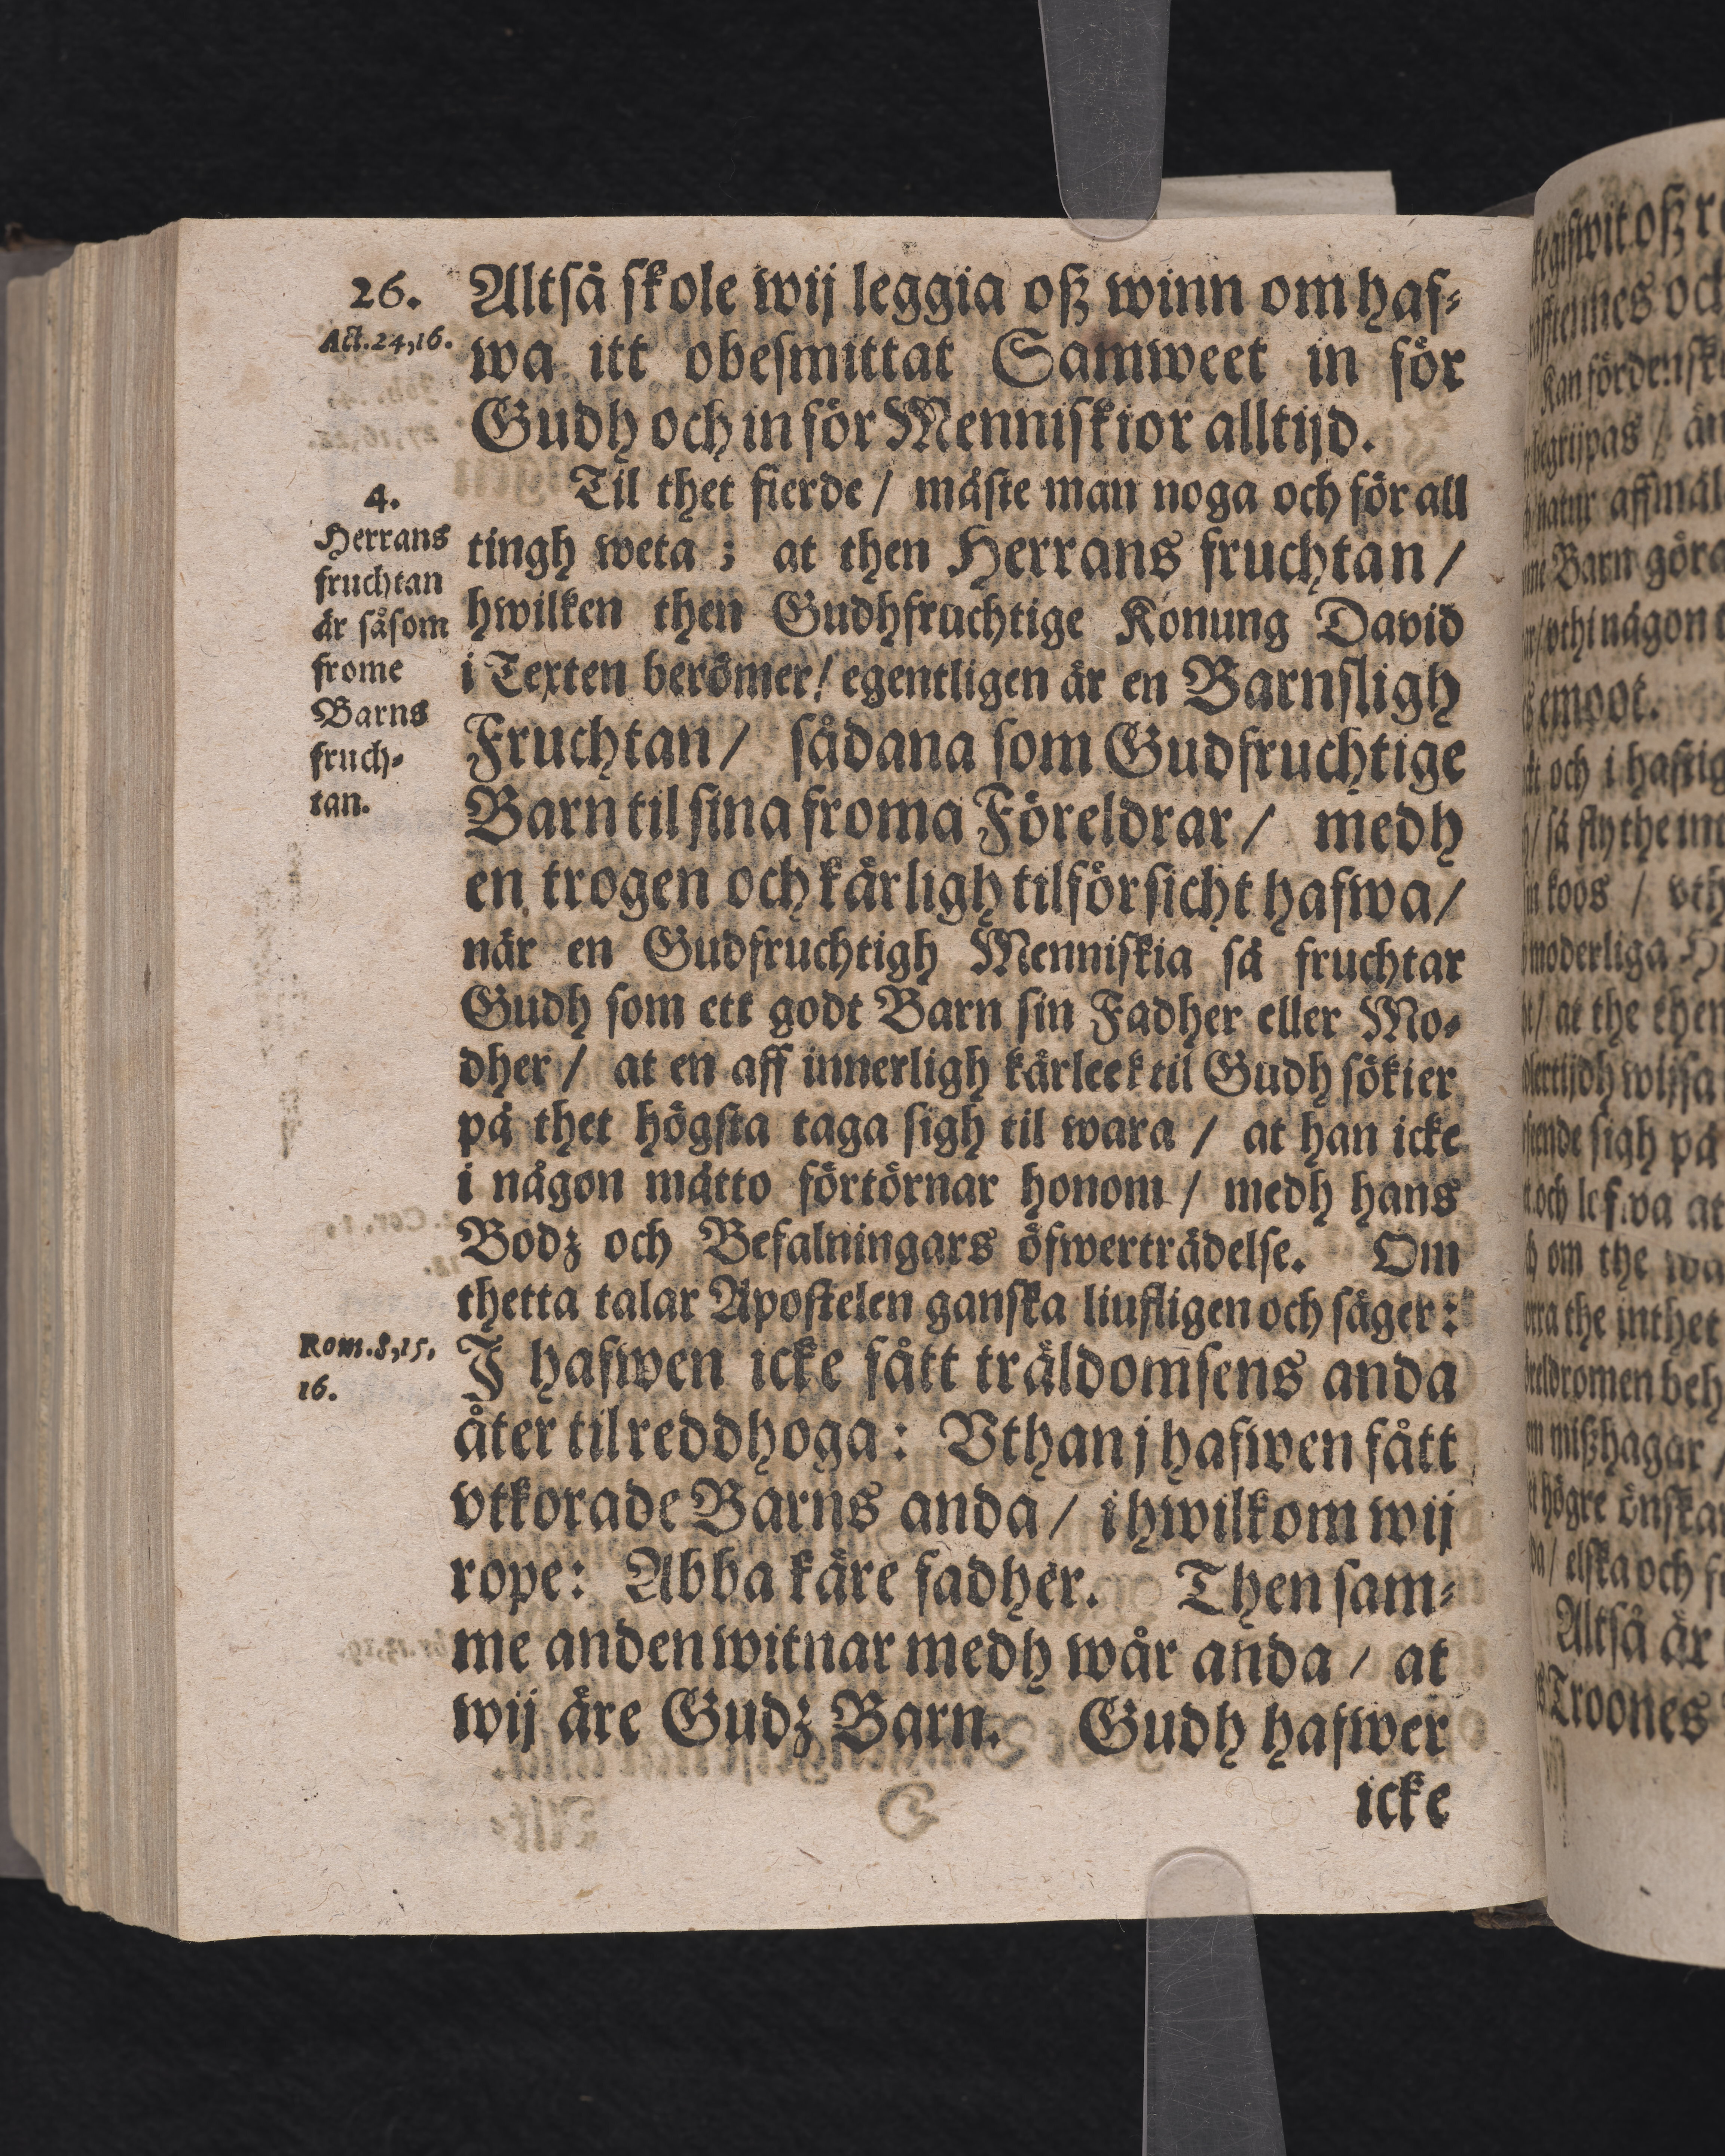 26.
Act.24,16.
Altså skole wij leggia oß winn om haf-
wa itt obesmittat Samweet in för
Gudh och in för Menniskior alltijd.
4.
Herrans
fruchtan
är såsom
frome
Barns
fruch-
tan.
Til thet fierde / måste man noga och för all
tingh weta ; at then Herrans fruchtan /
hwilken then Gudhfruchtige Konung David
i Texten berömer / egentligen är en Barnsligh
Fruchtan / sådana som Gudfruchtige
Barn til sina froma Föreldrar / medh
en trogen och kärligh tilförsicht hafwa /
när en Gudfruchtigh Menniskia så fruchtar
Gudh som ett godt Barn sin Fadher eller Mo-
dher / at en aff innerligh kärleek til Gudh sökier
på thet högsta taga sigh til wara / at han icke
i någon måtto förtörnar honom / medh hans
Bodz och Befalningars öfwerträdelse. Om
thetta talar Apostelen ganska liufligen och säger :
Rom.8,15,
16.
J hafwen icke fått träldomsens anda
åter til reddhoga : Vthan j hafwen fått
vtkorade Barns anda / i hwilkom wij
rope : Abba käre fadher. Then sam-
me anden witnar medh wår anda / at
wij äre Gudz Barn. Gudh hafwer
icke